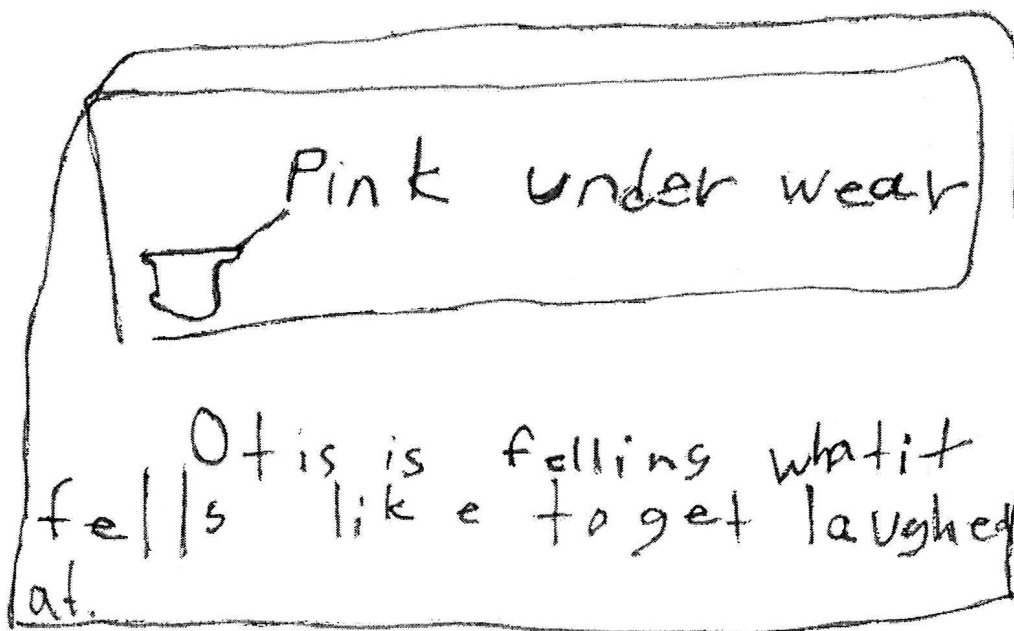 Pink under wear
Otis is felling what it
fells like to get laughed
at.